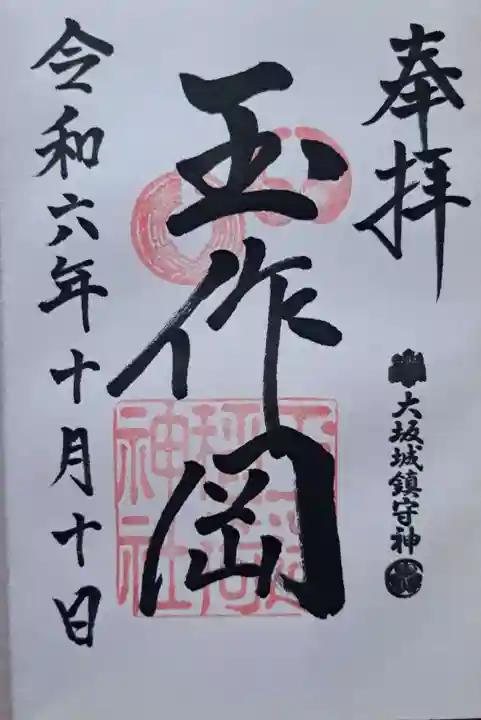 奉拝
大坂城鎮守神
玉作岡
神社
令和六年十月十日